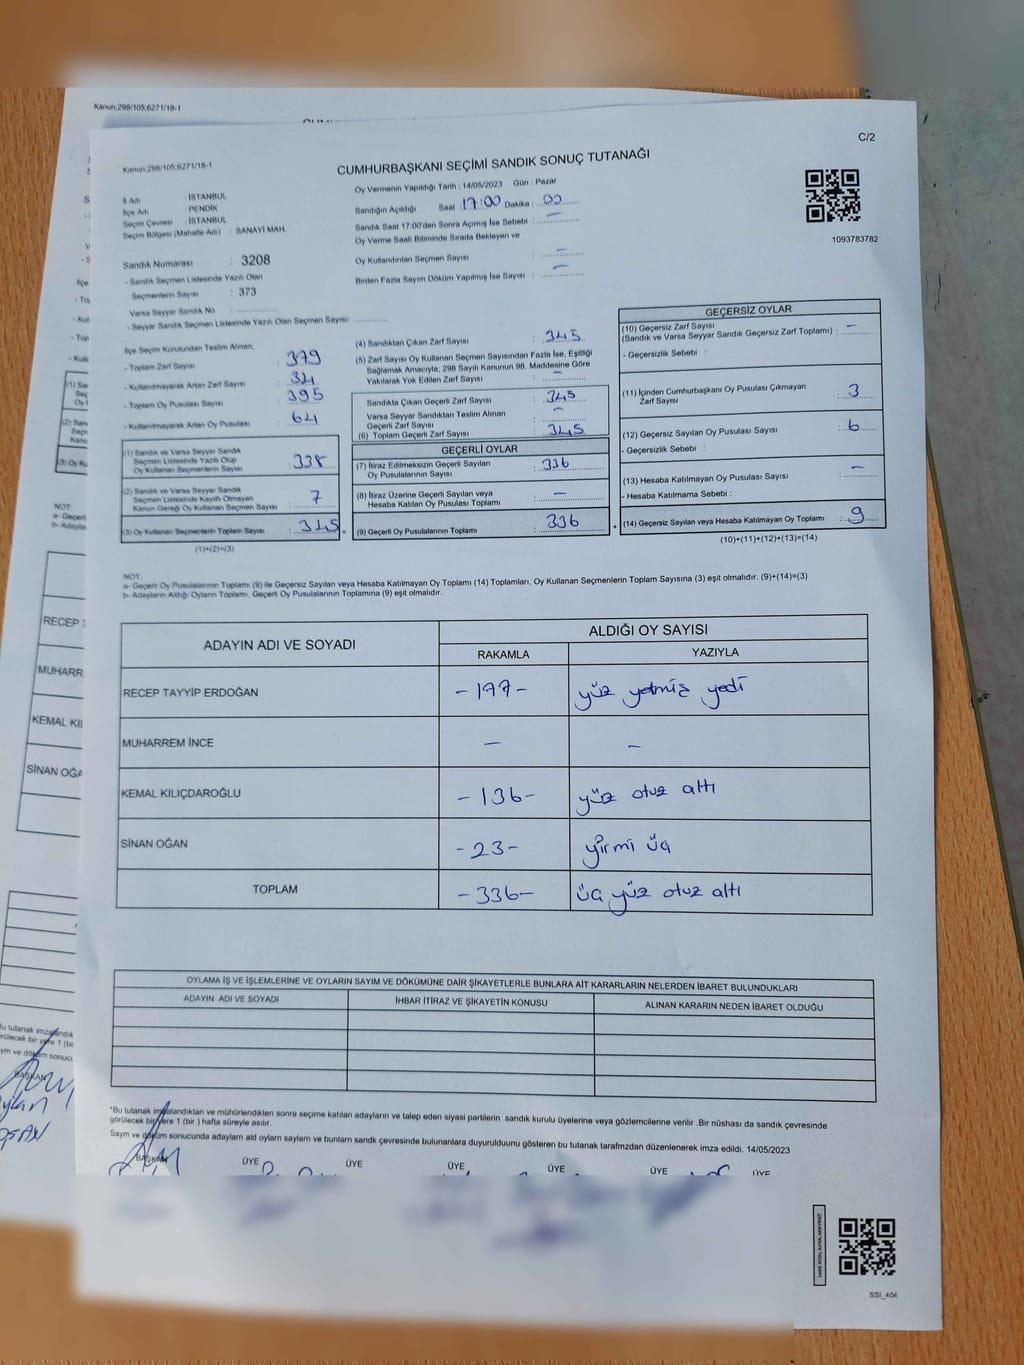 Kanun;298/105,6271/18-1
C/2
Kanun;298/105,6271/18-1
CUMHURBAŞKANI SEÇİMİ SANDIK SONUÇ TUTANAĞI
İl Adı : İSTANBUL
İlçe Adı : PENDİK
Seçim Çevresi : İSTANBUL
Seçim Bölgesi (Mahalle Adı) : SANAYİ MAH.
Oy Vermenin Yapıldığı Tarih : 14/05/2023 Gün : Pazar
Sandığın Açıldığı Saat : 17:00 Dakika : 00
Sandık Saat 17:00'den Sonra Açımış İse Sebebi : –
Oy Verme Saati Bitiminde Sırada Bekleyen ve
Oy Kullandırılan Seçmen Sayısı : –
Birden Fazla Sayım Döküm Yapılmış İse Sayısı : –
1093783782
Sandık Numarası : 3208
- Sandık Seçmen Listesinde Yazılı Olan
Seçmenlerin Sayısı : 373
Varsa Seyyar Sandık No :
- Seyyar Sandık Seçmen Listesinde Yazılı Olan Seçmen Sayısı:
İlçe Seçim Kurulundan Teslim Alınan;
- Toplam Zarf Sayısı : 379
- Kullanılmayarak Artan Zarf Sayısı : 34
- Toplam Oy Pusulası Sayısı : 395
- Kullanılmayarak Artan Oy Pusulası : 64
(1) Sandık ve Varsa Seyyar Sandık
Seçmen Listesinde Yazılı Olup
Oy Kullanan Seçmenlerin Sayısı : 338
(2) Sandık ve Varsa Seyyar Sandık
Seçmen Listesinde Kayıtlı Olmayan
Kanun Gereği Oy Kullanan Seçmen Sayısı : 7
(3) Oy Kullanan Seçmenlerin Toplam Sayısı : 345
(1)+(2)=(3)
(4) Sandıktan Çıkan Zarf Sayısı : 345
(5) Zarf Sayısı Oy Kullanan Seçmen Sayısından Fazla İse, Eşitliği
Sağlamak Amacıyla; 298 Sayılı Kanunun 98. Maddesine Göre
Yakılarak Yok Edilen Zarf Sayısı : –
Sandıkta Çıkan Geçerli Zarf Sayısı : 345
Varsa Seyyar Sandıktan Teslim Alınan
Geçerli Zarf Sayısı : –
(6) Toplam Geçerli Zarf Sayısı : 345
GEÇERLİ OYLAR
(7) İtiraz Edilmeksizin Geçerli Sayılan
Oy Pusulalarının Sayısı : 336
(8) İtiraz Üzerine Geçerli Sayılan veya
Hesaba Katılan Oy Pusulası Toplamı : –
(9) Geçerli Oy Pusulalarının Toplamı : 336
GEÇERSİZ OYLAR
(10) Geçersiz Zarf Sayısı
(Sandık ve Varsa Seyyar Sandık Geçersiz Zarf Toplamı) : –
- Geçersizlik Sebebi :
(11) İçinden Cumhurbaşkanı Oy Pusulası Çıkmayan
Zarf Sayısı : 3
(12) Geçersiz Sayılan Oy Pusulası Sayısı : 6
- Geçersizlik Sebebi :
(13) Hesaba Katılmayan Oy Pusulası Sayısı : –
- Hesaba Katılmama Sebebi :
(14) Geçersiz Sayılan veya Hesaba Katılmayan Oy Toplamı : 9
(10)+(11)+(12)+(13)=(14)
NOT:
a- Geçerli Oy Pusulalarının Toplamı (9) ile Geçersiz Sayılan veya Hesaba Katılmayan Oy Toplamı (14) Toplamları, Oy Kullanan Seçmenlerin Toplam Sayısına (3) eşit olmalıdır. (9)+(14)=(3)
b- Adayların Aldığı Oyların Toplamı, Geçerli Oy Pusulalarının Toplamına (9) eşit olmalıdır.
ADAYIN ADI VE SOYADI ALDIĞI OY SAYISI
RAKAMLA YAZIYLA
RECEP TAYYİP ERDOĞAN -177- yüz yetmiş yedi
MUHARREM İNCE – –
KEMAL KILIÇDAROĞLU -136- yüz otuz altı
SİNAN OĞAN -23- yirmi üç
TOPLAM -336- üç yüz otuz altı
OYLAMA İŞ VE İŞLEMLERİNE VE OYLARIN SAYIM VE DÖKÜMÜNE DAİR ŞİKAYETLERLE BUNLARA AİT KARARLARIN NELERDEN İBARET BULUNDUKLARI
ADAYIN ADI VE SOYADI İHBAR İTİRAZ VE ŞİKAYETİN KONUSU ALINAN KARARIN NEDEN İBARET OLDUĞU
*Bu tutanak imzalandıktan ve mühürlendikten sonra seçime katılan adayların ve talep eden siyasi partilerin sandık kurulu üyelerine veya gözlemcilerine verilir .Bir nüshası da sandık çevresinde
görülecek bir yere 1 (bir ) hafta süreyle asılır.
Sayım ve döküm sonucunda adaylarn ald oylarn saylarn ve bunlarn sandk çevresinde bulunanlara duyurulduunu gösteren bu tutanak tarafmzdan düzenlenerek imza edildi. 14/05/2023
BAŞKAN ÜYE ÜYE ÜYE ÜYE ÜYE ÜYE
SSI_404